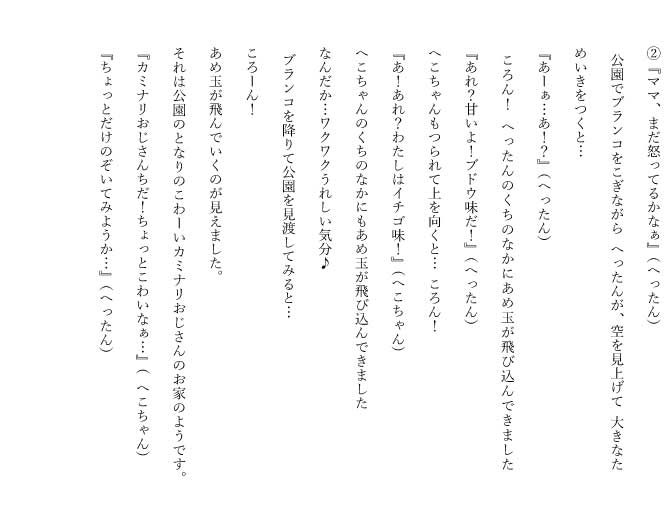 ②『ママ、まだ怒ってるかなぁ』(へったん)
公園でブランコをこぎながら へったんが、空を見上げて 大きなた
めいきをつくと…
『あーぁ…あ!?』(へったん)
ころん! へったんのくちのなかにあめ玉が飛び込んできました
『あれ?甘いよ!ブドウ味だ!』(へったん)
へこちゃんもつられて上を向くと… ころん!
『あ!あれ?わたしはイチゴ味!』(へこちゃん)
へこちゃんのくちのなかにもあめ玉が飛び込んできました
なんだか…ワクワクうれしい気分♪
ブランコを降りて公園を見渡してみると…
ころーん!
あめ玉が飛んでいくのが見えました。
それは公園のとなりのこわーいカミナリおじさんのお家のようです。
『カミナリおじさんちだ!ちょっとこわいなぁ…』( へこちゃん)
『ちょっとだけのぞいてみようか…』(へったん)